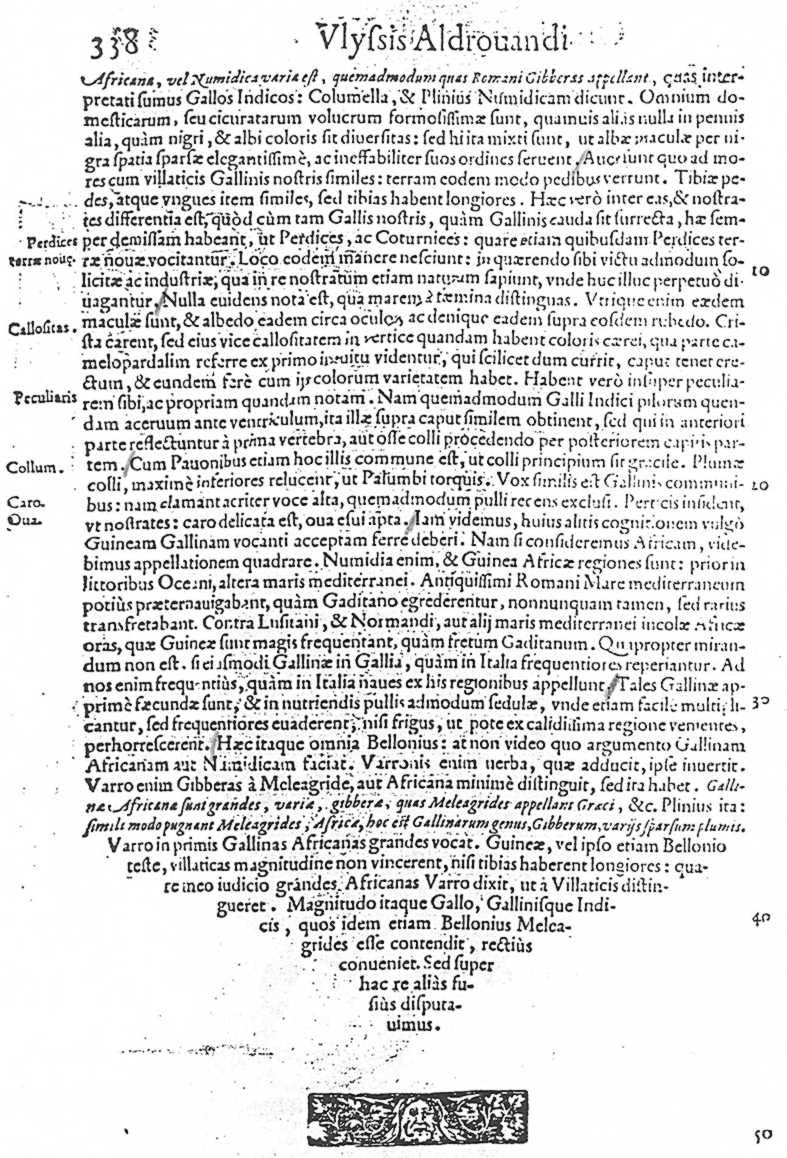 338
Vlyſsis Aldrouandi
Africana, vel Numidica varia eſt, quemadmodum quas Romani Gibberas appellant, quas inter-
pretati ſumus Gallos Indicos: Columella, & Plinius Numidicam dicunt. Omnium do-
meſticarum, ſeu cicuratarum volucrum formoſiſſimæ ſunt, quamuis aliàs nulla in pennis
alia, quàm nigri, & albi coloris ſit diuerſitas: ſed hi ita mixti ſunt, ut albæ maculæ per ni-
gra ſpatia ſparſæ elegantiſſimè, ac ineffabiliter ſuos ordines ſeruent. Accedunt quo ad mo-
res cum villaticis Gallinis noſtris ſimiles: terram eodem modo pedibus verrunt. Tibiæ pe-
des, atque vngues item ſimiles, ſed tibias habent longiores. Hæc verò inter eas, & noſtra-
tes differentia eſt, quòd cùm tam Gallis noſtris, quàm Gallinis cauda ſit ſurrecta, hæ ſem-
Perdices
per demiſſam habeant, ut Perdices, ac Coturnices: quare etiam quibuſdam Perdices ter-
terræ nouę.
ræ nouæ vocitantur. Loco eodem manere neſciunt: in quærendo ſibi victu admodum ſo-
10
licitæ ac induſtriæ, qua in re noſtratum etiam naturam ſapiunt, vnde huc illuc perpetuò di-
uagantur. Nulla euidens nota eſt, qua marem à fæmina diſtinguas. Vtrique enim eædem
Calloſitas.
maculæ ſunt, & albedo eadem circa oculos, ac denique eadem ſupra eoſdem rubedo. Cri-
ſta carent, ſed eius vice calloſitatem in vertice quandam habent coloris cærei, qua parte ca-
melopardalim referre ex primo intuitu videntur, qui ſcilicet dum currit, caput tenet ere-
ctum, & eundem ferè cum ijs colorum varietatem habet. Habent verò inſuper peculia-
Peculiaris
rem ſibi, ac propriam quandam notam. Nam quemadmodum Galli Indici pilorum quen-
dam aceruum ante ventriculum, ita illæ ſupra caput ſimilem obtinent, ſed qui in anteriori
parte reflectuntur à prima vertebra, aut oſſe colli procedendo per poſteriorem capitis par-
Collum.
tem. Cum Pauonibus etiam hoc illis commune eſt, ut colli principium ſit gracile. Plumæ
colli, maximè inferiores relucent, ut Palumbi torquis. Vox ſimilis eſt Gallinis communi-
20
Caro.
bus: nam clamant acriter voce alta, quemadmodum pulli recens excluſi. Perticis inſident,
Oua.
vt noſtrates: caro delicata eſt, oua eſui apta. Iam videmus, huius alitis cognitionem vulgò
Guineam Gallinam vocanti acceptam ferre deberi. Nam ſi conſideremus Africam, vide-
bimus appellationem quadrare. Numidia enim, & Guinea Africæ regiones ſunt: prior in
littoribus Oceani, altera maris mediterranei. Antiquiſſimi Romani Mare mediterraneum
potiùs præternauigabant, quàm Gaditano egrederentur, nonnunquam tamen, ſed rariùs
transfretabant. Contra Luſitani, & Normandi, aut alij maris mediterranei incolæ Africæ
oras, quæ Guineæ ſunt magis frequentant, quàm fretum Gaditanum. Quapropter miran-
dum non eſt. ſi eiuſmodi Gallinæ in Gallia, quàm in Italia frequentiores reperiantur. Ad
nos enim frequentiùs, quàm in Italia naues ex his regionibus appellunt. Tales Gallinæ ap-
primè fæcundæ ſunt, & in nutriendis pullis admodum ſedulæ, vnde etiam facilè multipli-
30
cantur, ſed frequentiores euaderent, niſi frigus, ut pote ex calidiſſima regione venientes,
perhorreſcerent. Hæc itaque omnia Bellonius: at non video quo argumento Gallinam
Africanam aut Numidicam faciat. Varronis enim uerba, quæ adducit, ipſe inuertit.
Varro enim Gibberas à Meleagride, aut Africana minimè diſtinguit, ſed ita habet. Galli-
næ Africanæ ſunt grandes, variæ, gibberæ, quas Meleagrides appellant Græci, &c. Plinius ita:
ſimili modo pugnant Meleagrides, Africæ, hoc eſt Gallinarum genus, Gibberum, varijs ſparſum plumis.
Varro in primis Gallinas Africanas grandes vocat. Guineæ, vel ipſo etiam Bellonio
teſte, villaticas magnitudine non vincerent, niſi tibias haberent longiores: qua-
re meo iudicio grandes Africanas Varro dixit, ut à Villaticis diſtin-
gueret. Magnitudo itaque Gallo, Galliniſque Indi-
cis, quos idem etiam Bellonius Melea-
40
grides eſſe contendit, rectiùs
conueniet. Sed ſuper
hac re aliàs fu-
ſiùs diſputa-
uimus.
50